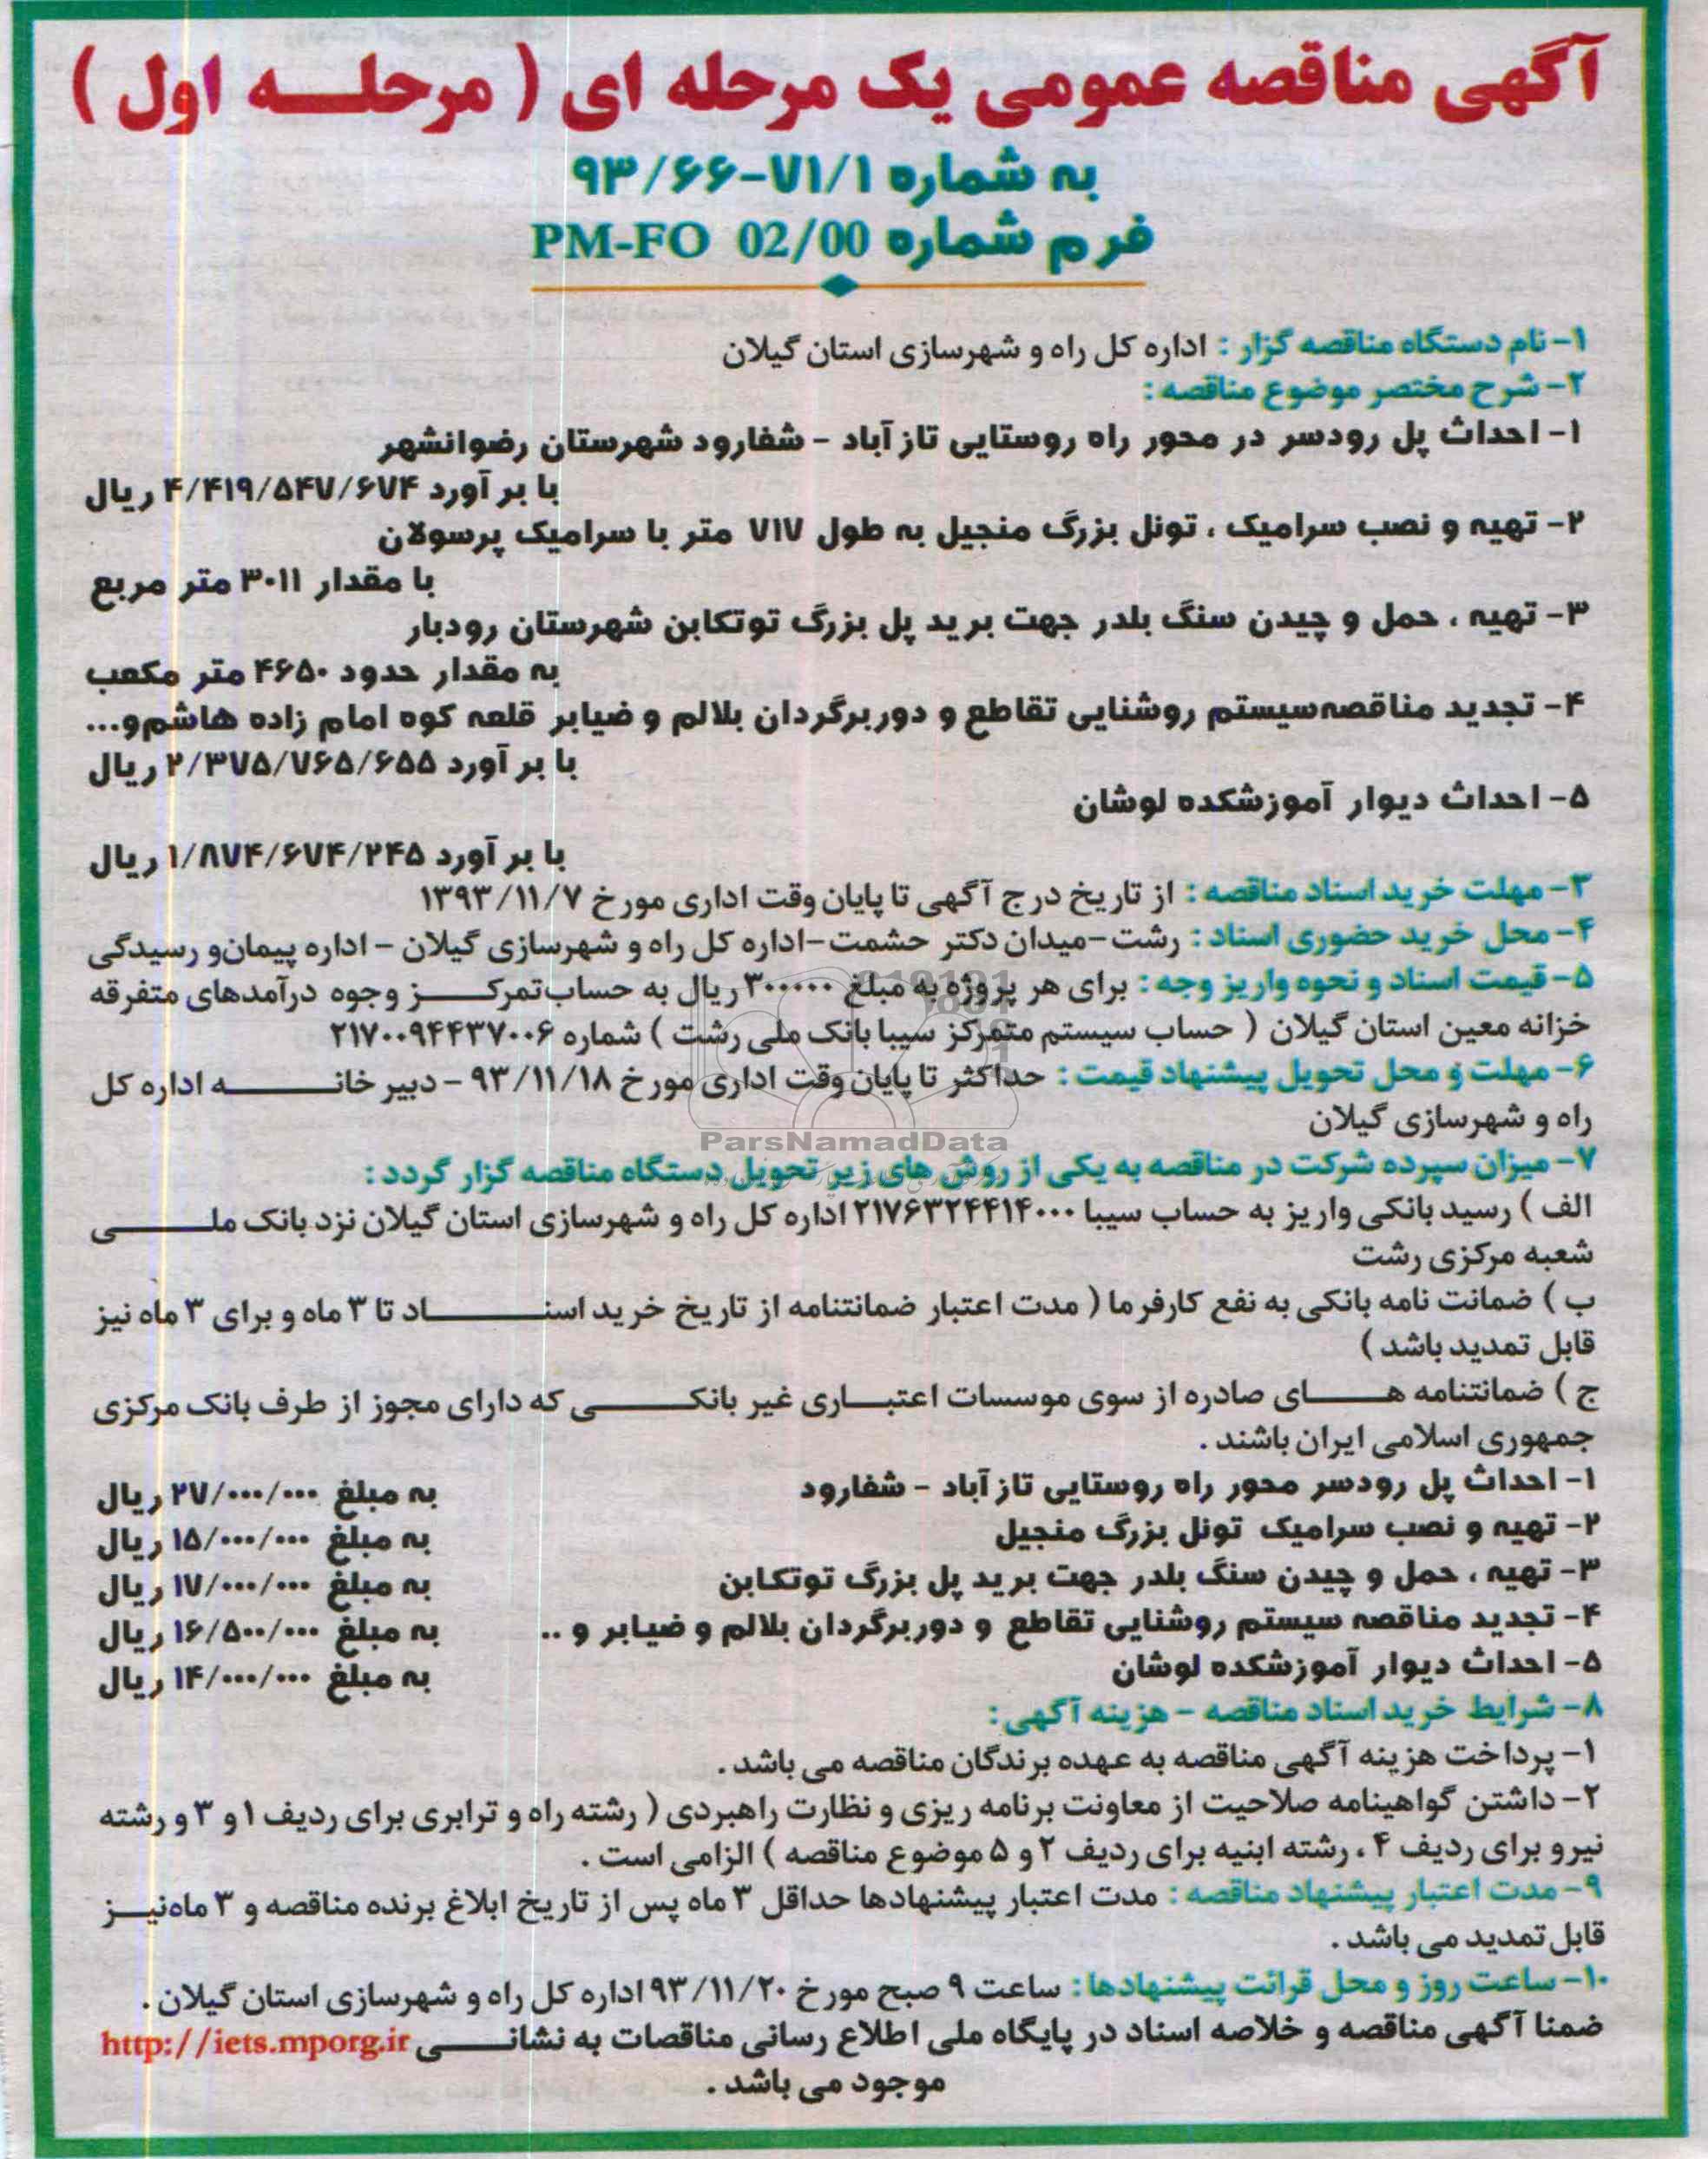 آگهی مناقصه عمومی یک مرحله ای ( مرحلـــه اول )
به شماره ۷۱/۱-۹۳/۶۶
فرم شماره PM-FO 02/00
۱- نام دستگاه مناقصه گزار : اداره کل راه و شهرسازی استان گیلان
۲- شرح مختصر موضوع مناقصه :
۱- احداث پل رودسر در محور راه روستایی تاز آباد - شفارود شهرستان رضوانشهر
با بر آورد ۴/۴۱۹/۵۴۷/۶۷۴ ریال
۲- تهیه و نصب سرامیک ، تونل بزرگ منجیل به طول ۷۱۷ متر با سرامیک پرسولان
با مقدار ۳۰۱۱ متر مربع
۳- تهیه ، حمل و چیدن سنگ بلدر جهت برید پل بزرگ توتکابن شهرستان رودبار
به مقدار حدود ۴۶۵۰ متر مکعب
۴- تجدید مناقصه سیستم روشنایی تقاطع و دوربرگردان بلالم و ضیابر قلعه کوه امام زاده هاشم و...
با بر آورد ۲/۳۷۵/۷۶۵/۶۵۵ ریال
۵- احداث دیوار آموزشکده لوشان
با بر آورد ۱/۸۷۴/۶۷۴/۲۴۵ ریال
۳- مهلت خرید اسناد مناقصه : از تاریخ درج آگهی تا پایان وقت اداری مورخ ۱۳۹۳/۱۱/۷
۴- محل خرید حضوری اسناد : رشت-میدان دکتر حشمت-اداره کل راه و شهرسازی گیلان - اداره پیمان و رسیدگی
۵- قیمت اسناد و نحوه واریز وجه : برای هر پروژه به مبلغ ۳۰۰۰۰۰ ریال به حساب تمرکـــز وجوه درآمدهای متفرقه
خزانه معین استان گیلان ( حساب سیستم متمرکز سیبا بانک ملی رشت ) شماره ۲۱۷۰۰۹۴۴۳۷۰۰۶
۶- مهلت و محل تحویل پیشنهاد قیمت : حداکثر تا پایان وقت اداری مورخ ۹۳/۱۱/۱۸ - دبیر خانـــه اداره کل
راه و شهرسازی گیلان
ParsNamadData
۷- میزان سپرده شرکت در مناقصه به یکی از روش های زیر تحویل دستگاه مناقصه گزار گردد :
الف ) رسید بانکی واریز به حساب سیبا ۲۱۷۶۳۲۴۴۱۴۰۰۰ اداره کل راه و شهرسازی استان گیلان نزد بانک ملـــی
شعبه مرکزی رشت
ب ) ضمانت نامه بانکی به نفع کارفرما ( مدت اعتبار ضمانتنامه از تاریخ خرید اسنـــاد تا ۳ ماه و برای ۳ ماه نیز
قابل تمدید باشد )
ج ) ضمانتنامه هـــای صادره از سوی موسسات اعتبـــاری غیر بانکـــی که دارای مجوز از طرف بانک مرکزی
جمهوری اسلامی ایران باشند .
۱- احداث پل رودسر محور راه روستایی تاز آباد - شفارود به مبلغ ۲۷/۰۰۰/۰۰۰ ریال
۲- تهیه و نصب سرامیک تونل بزرگ منجیل به مبلغ ۱۵/۰۰۰/۰۰۰ ریال
۳- تهیه ، حمل و چیدن سنگ بلدر جهت برید پل بزرگ توتکابن به مبلغ ۱۷/۰۰۰/۰۰۰ ریال
۴- تجدید مناقصه سیستم روشنایی تقاطع و دوربرگردان بلالم و ضیابر و .. به مبلغ ۱۶/۵۰۰/۰۰۰ ریال
۵- احداث دیوار آموزشکده لوشان به مبلغ ۱۴/۰۰۰/۰۰۰ ریال
۸- شرایط خرید اسناد مناقصه - هزینه آگهی :
۱- پرداخت هزینه آگهی مناقصه به عهده برندگان مناقصه می باشد .
۲- داشتن گواهینامه صلاحیت از معاونت برنامه ریزی و نظارت راهبردی ( رشته راه و ترابری برای ردیف ۱ و ۳ و رشته
نیرو برای ردیف ۴ ، رشته ابنیه برای ردیف ۲ و ۵ موضوع مناقصه ) الزامی است .
۹- مدت اعتبار پیشنهاد مناقصه : مدت اعتبار پیشنهادها حداقل ۳ ماه پس از تاریخ ابلاغ برنده مناقصه و ۳ ماه نیـــز
قابل تمدید می باشد .
۱۰- ساعت روز و محل قرائت پیشنهادها : ساعت ۹ صبح مورخ ۹۳/۱۱/۲۰ اداره کل راه و شهرسازی استان گیلان .
ضمنا آگهی مناقصه و خلاصه اسناد در پایگاه ملی اطلاع رسانی مناقصات به نشانـــی http://iets.mporg.ir
موجود می باشد .